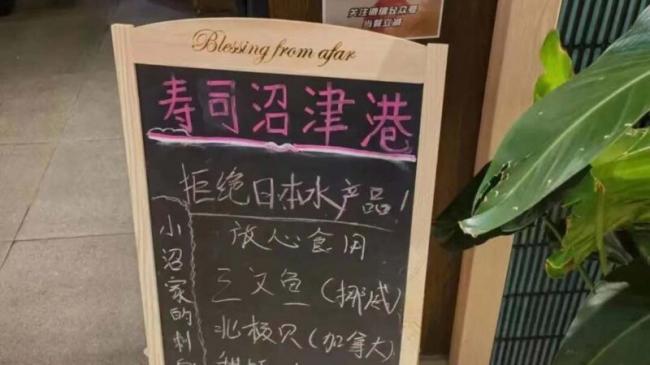 关注微信公众号
当餐立减
Blessing from afar
寿司沼津港
拒绝日本水产品!
放心食用
三文鱼(挪威)
北极贝(加拿大)
小沼家的刺